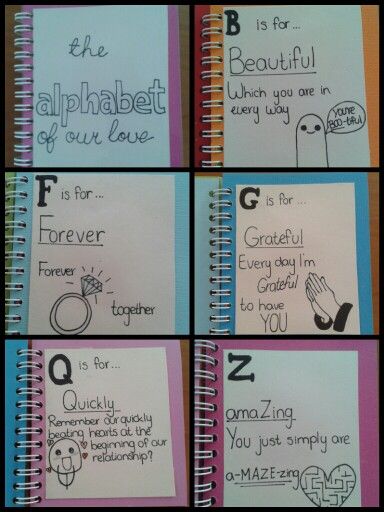 the
alphabet
of our love
B is for...
Beautiful
Which you are in
every way
you're
BOO-tiful
F is for...
Forever
Forever
together
G is for...
Grateful
Every day I'm
Grateful
to have
YOU
Q is for...
Quickly
Remember our quickly
beating hearts at the
beginning of our
relationship?
Z
amaZing
You just simply are
a-MAZE-zing